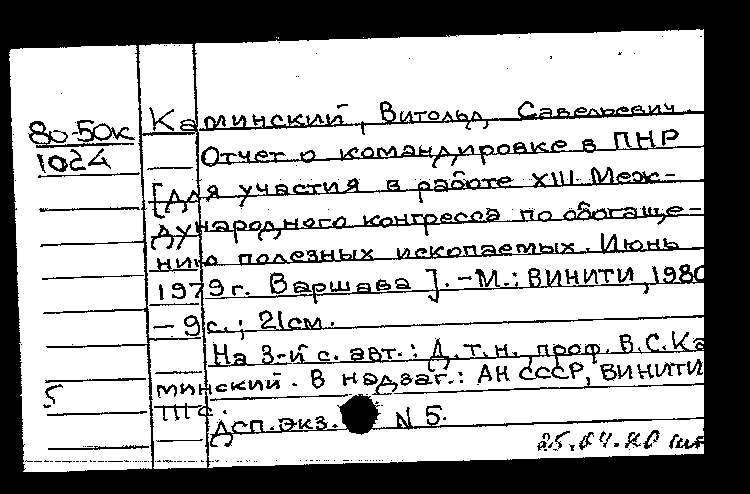 80-50к
1024
Каминский, Витольд Савельевич.
Отчет о командировке в ПНР
[для участия в работе XIII Меж-
дународного конгресса по обогаще-
нию полезных ископаемых. Июнь
1979 г. Варшава]. -М.: ВИНИТИ, 1980
- 9 с.; 21 см.
На 3-й с. авт.: Д.т.н., проф. В.С. Ка
минский. В надзаг.: АН СССР, ВИНИТИ
5
ДСП. экз. N 5.
25.04.80